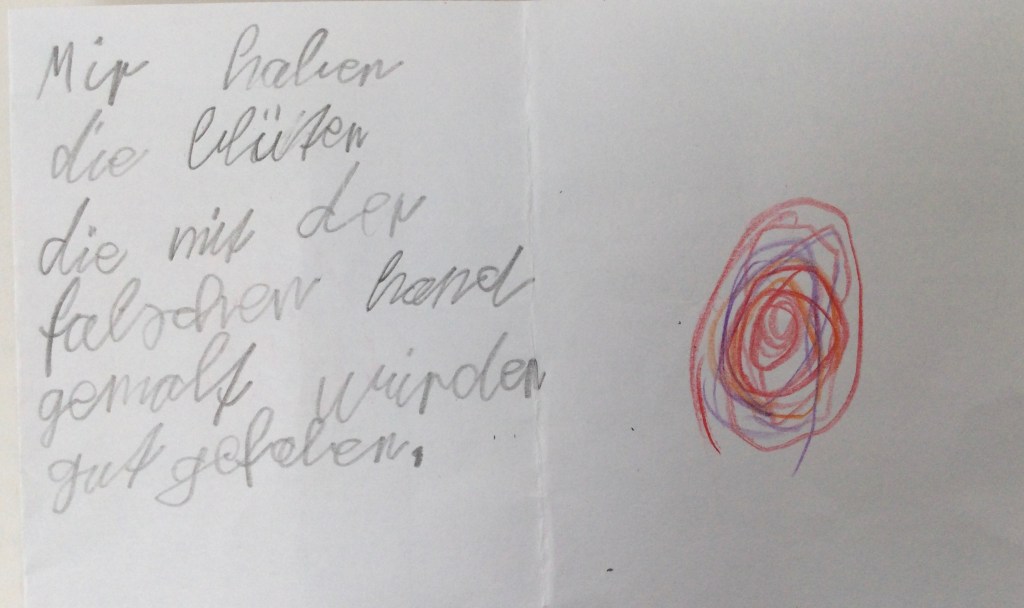 Mir haben
die blüten
die mit der
falschen hand
gemalt wurden
gut gefalen.